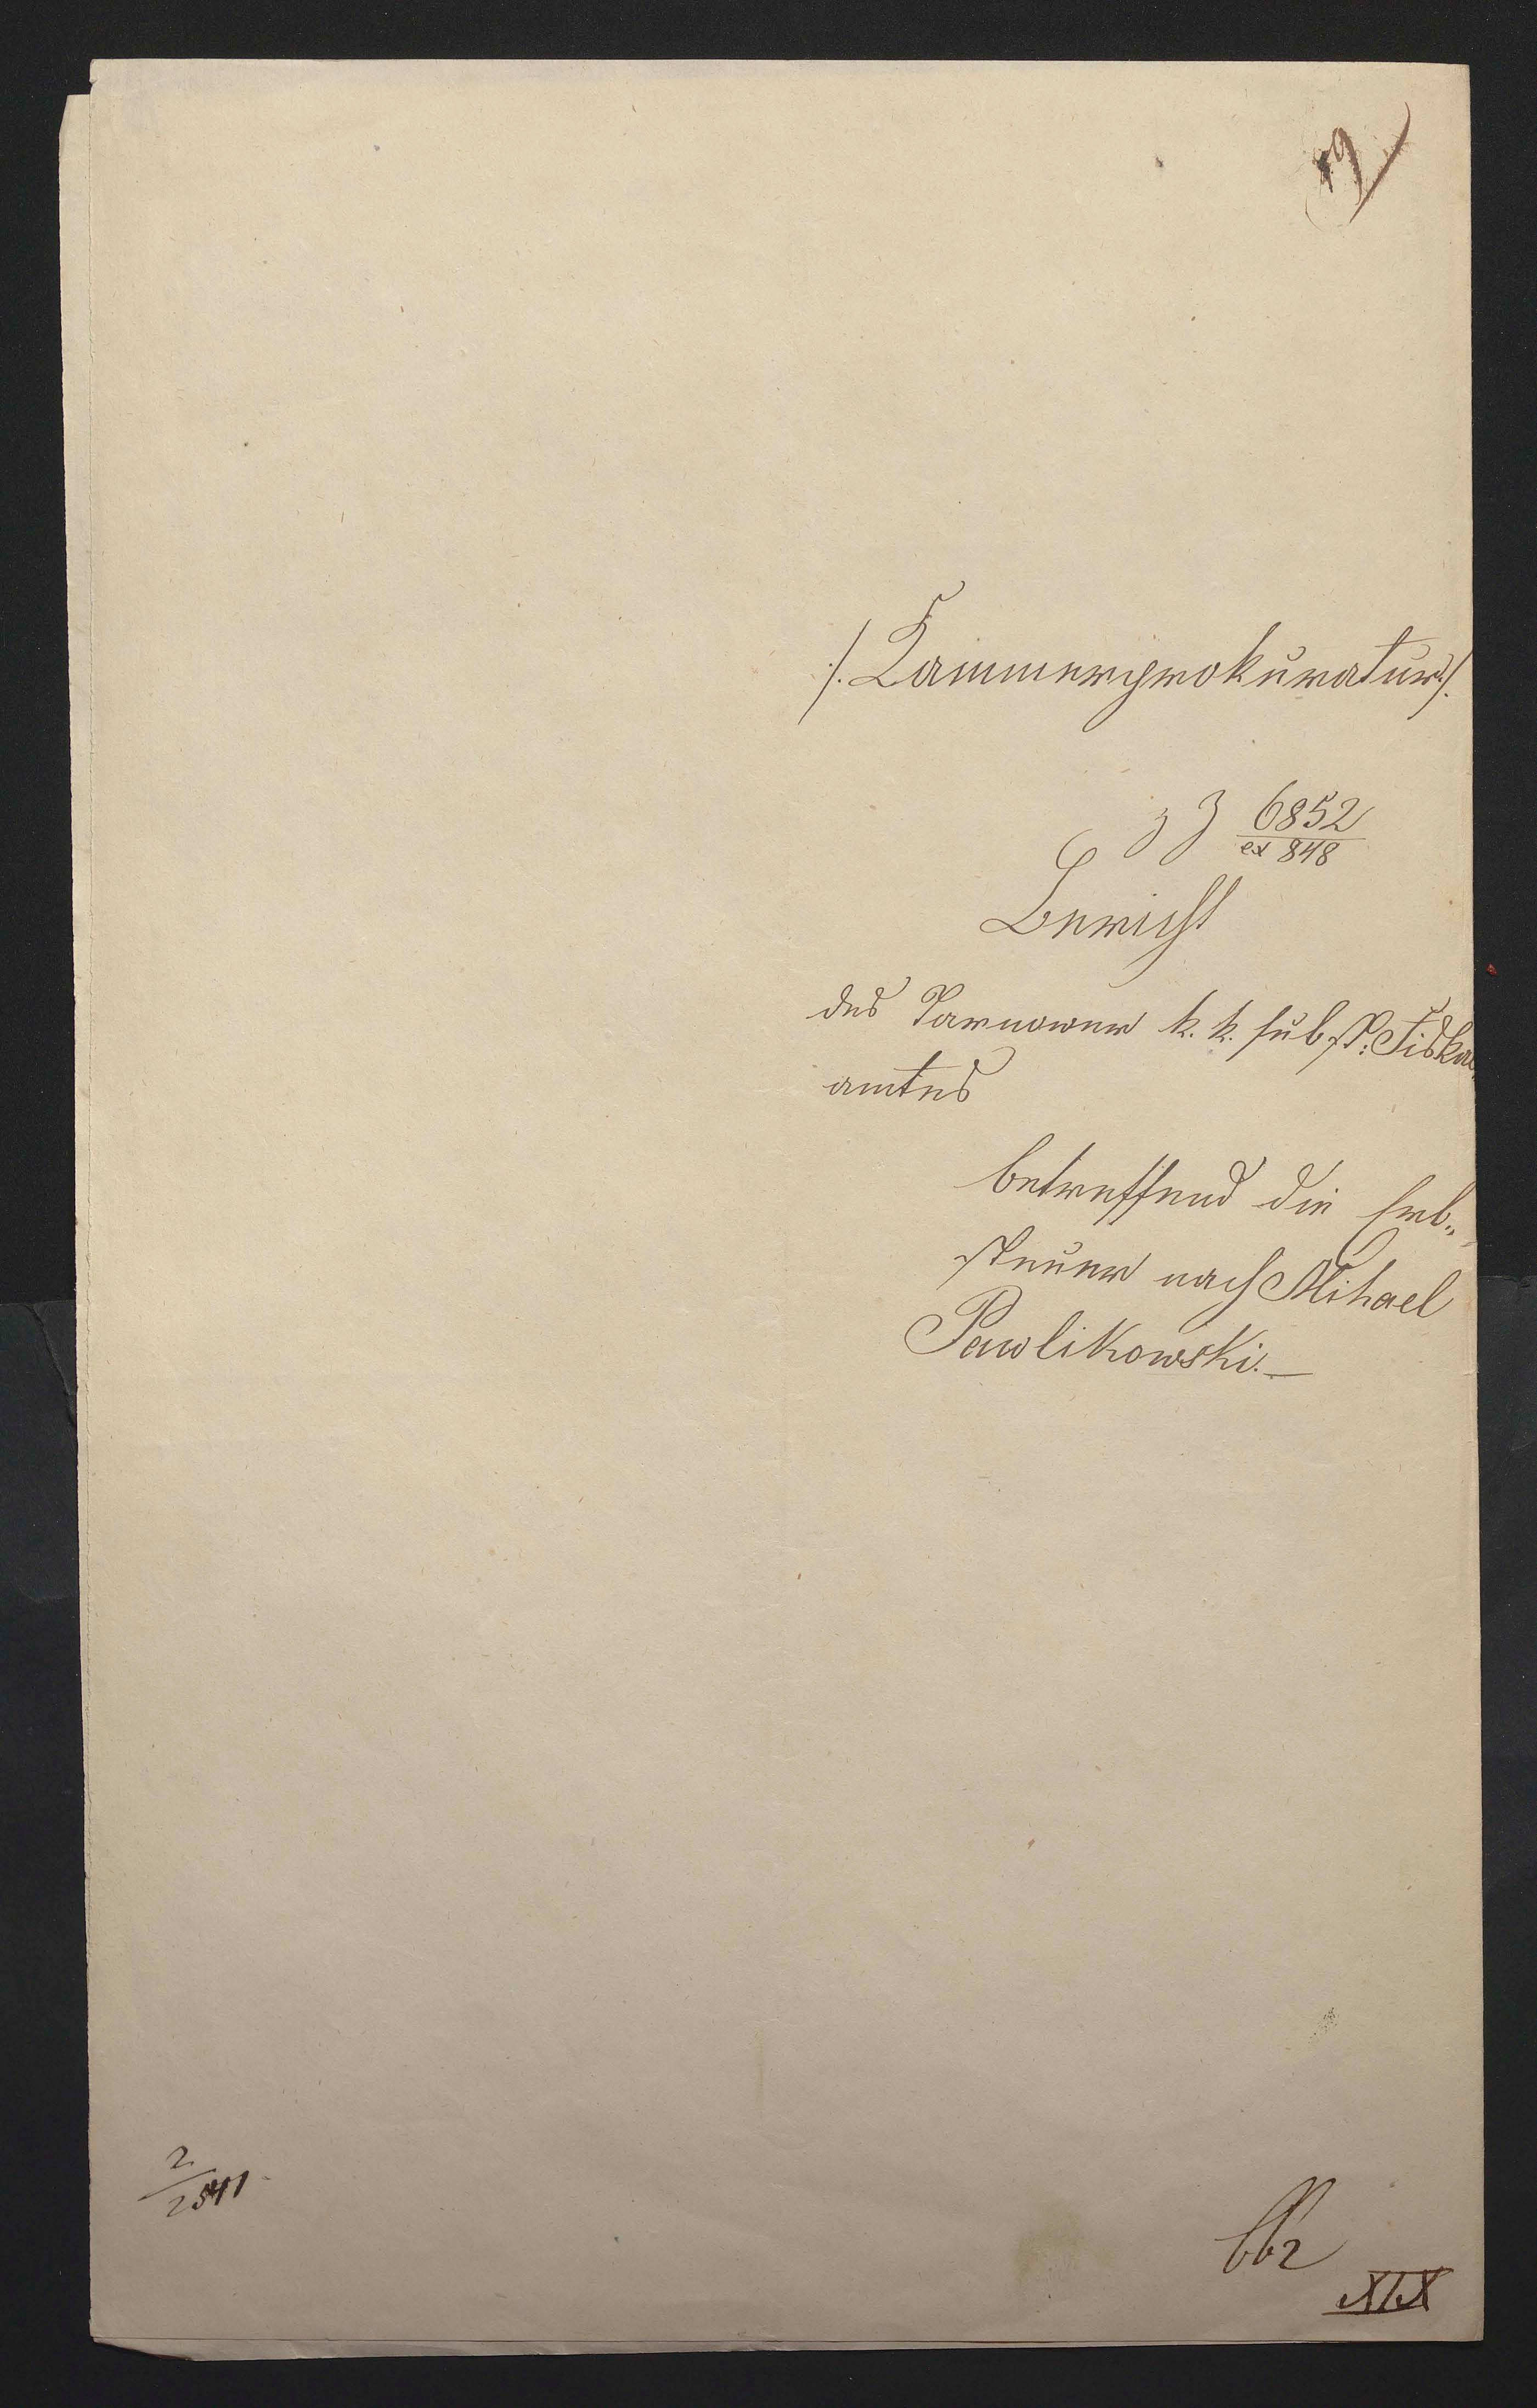 /. Kammerprokuratur /.
z Z 6852
ex 848
Bericht
des Tarnower k. k. subst: Fiskal
amtes
betreffend die Erb„
steuer nach Mihael
Pawlikowski. —
2
/
2541
XIX